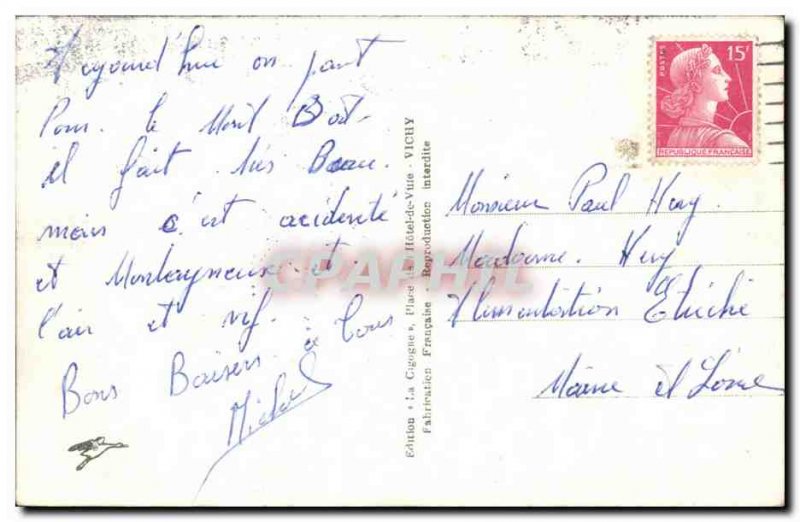 Aujourd'hui on part
Pour le Mont Dore
il fait très Beau.
mais c'est acidenté
et Montagneuse et
l'air et vif.
Bons Baisers à Tous
Michel
Edition « La Cigogne », Place de l'Hôtel-de-Ville VICHY
Fabrication Française - Reproduction interdite
POSTES
15F
REPUBLIQUE FRANÇAISE
Monsieur Paul Huy
Madame Huy
Alimentation Etriché
Maine et Loire
CPAPHIL